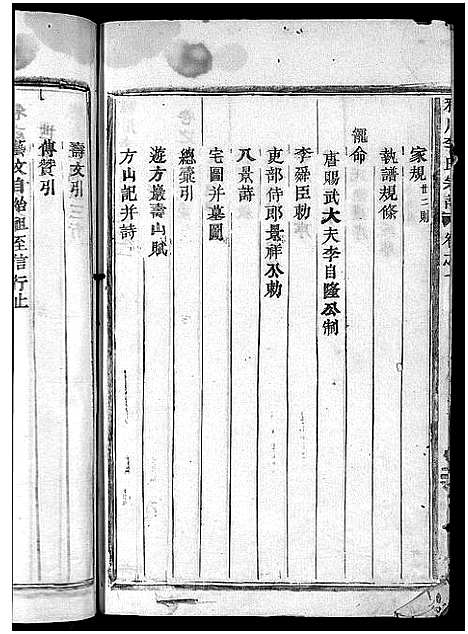 李氏宗譜 卷之
家規 廿二則
執譜規條
寵命
唐賜武大夫李自隆公制
李舜臣勅
吏部侍郎景祥公勅
八景詩
宅圖并墓圖
總彙引
遊方巖壽山賦
方山記并詩
壽文引
傳贊引
藝文自始祖至信行止